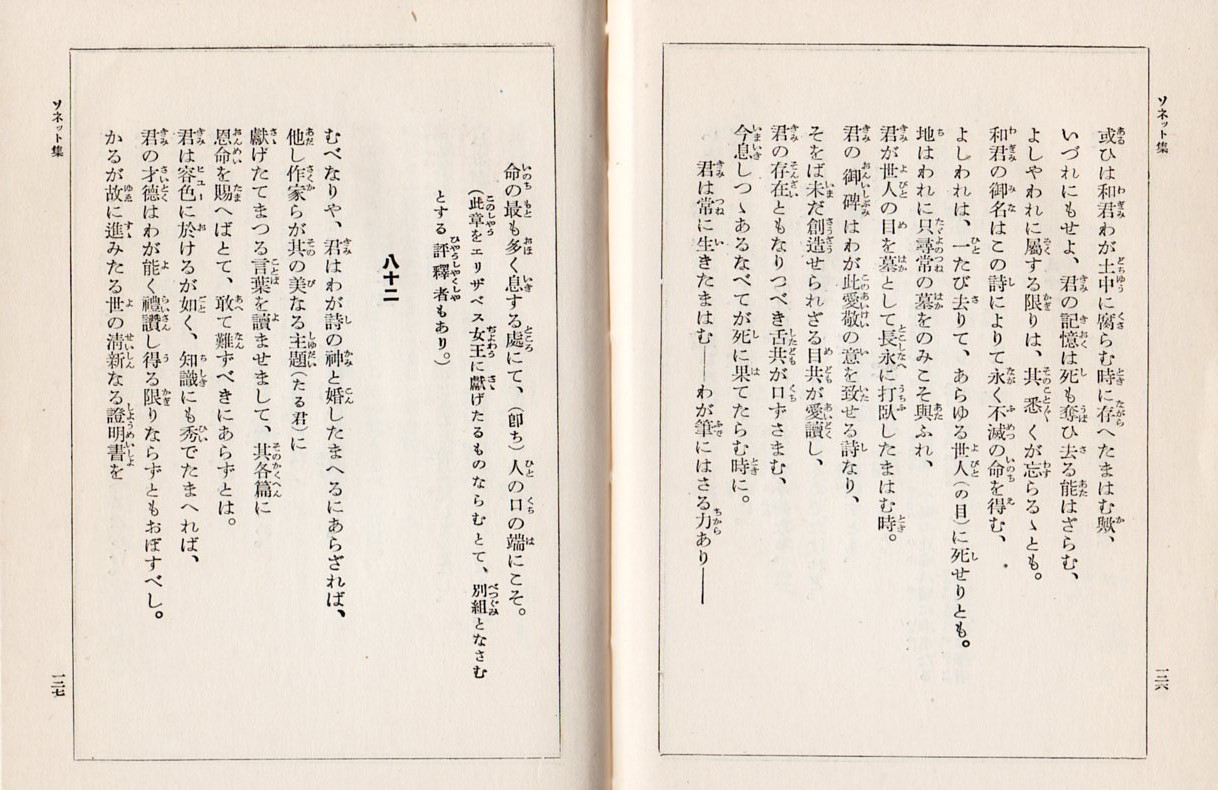 ソネット集
或ひは和君わが土中に腐らむ時に存へたまはむ歟、
いづれにもせよ、君の記憶は死も奪ひ去る能はざらむ、
よしやわれに屬する限りは、其悉くが忘らるゝとも。
和君の御名はこの詩によりて永く不滅の命を得む、
よしわれは、一たび去りて、あらゆる世人（の目）に死せりとも。
地はわれに只尋常の墓をのみこそ與ふれ、
君が世人の目を墓として長永に打臥したまはむ時。
君の御碑はわが此愛敬の意を致せる詩なり、
そをば未だ創造せられざる目共が愛讀し、
君の存在ともなりつべき舌共が口ずさまむ、
今息しつゝあるなべてが死に果てたらむ時に。
君は常に生きたまはむ――わが筆にはさる力あり――
一三六
ソネット集
命の最も多く息する處にて、（卽ち）人の口の端にこそ。
（此章をエリザベス女王に獻げたるものならむとて、別組となさむ
とする評釋者もあり。）
八十二
むべなりや、君はわが詩の神と婚したまへるにあらざれば、
他し作家らが其の美なる主題（たる君）に
獻げたてまつる言葉を讀ませまして、其各篇に
恩命を賜へばとて、敢て難ずべきにあらずとは。
君は容色に於けるが如く、知識にも秀でたまへれば、
君の才德はわが能く禮讚し得る限りならずともおぼすべし。
かるが故に進みたる世の淸新なる證明書を
一三七